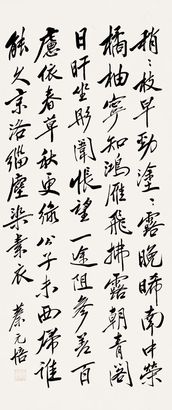 稍〻枝早勁塗〻露晚晞南中榮
橘柚寧知鴻雁飛拂露朝青閣
日旰坐彤闈悵望一途阻參差百
慮依春草秋更綠公子未西歸誰
能久京洛緇塵染素衣 蔡元培